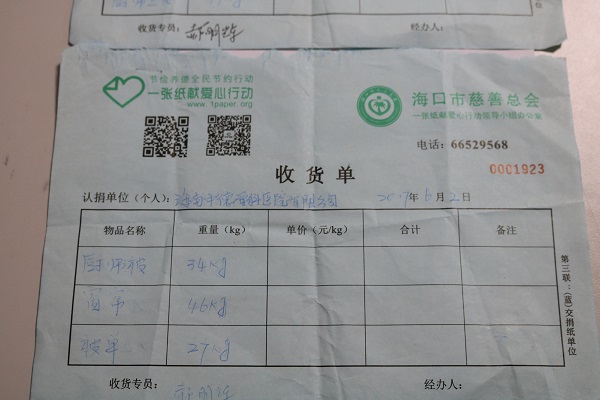 收货专员：
经办人：
节俭养德全民节约行动
一张纸献爱心行动
www.1paper.org
海口市慈善总会
一张纸献爱心行动领导小组办公室
电话：66529568
0001923
收货单
认捐单位（个人）：
年6月2日
物品名称 重量（kg） 单价（元/kg） 合计 备注
34kg
46kg
被单 27kg
第三联：（蓝）交捐纸单位
收货专员：
经办人：